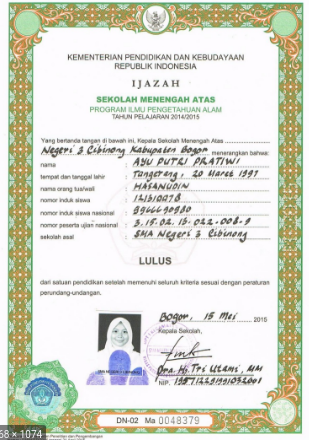 KEMENTERIAN PENDIDIKAN DAN KEBUDAYAAN
REPUBLIK INDONESIA
IJAZAH
SEKOLAH MENENGAH ATAS
PROGRAM ILMU PENGETAHUAN ALAM
TAHUN PELAJARAN 2014/2015
Yang bertanda tangan di bawah ini, Kepala Sekolah Menengah Atas
Negeri 3 Cibinong Kabupaten Bogor menerangkan bahwa:
nama : AYU PUTRI PRATIWI
tempat dan tanggal lahir : Tangerang, 20 Maret 1997
nama orang tua/wali : HASANUDIN
nomor induk siswa : 121310078
nomor induk siswa nasional : 9966690980
nomor peserta ujian nasional : 3.15.02.16.022.008.9
sekolah asal : SMA Negeri 3 Cibinong
LULUS
dari satuan pendidikan setelah memenuhi seluruh kriteria sesuai dengan peraturan
perundang-undangan.
Bogor, 15 Mei 2015
Kepala Sekolah,
Dra. Hj. Tri Utami, MM
NIP.
DN-02 Ma 0048379
68 × 1074